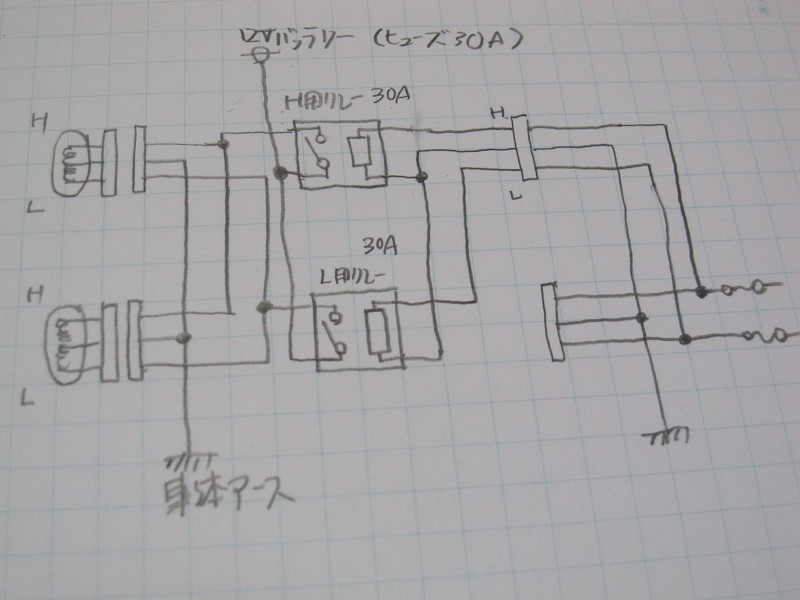 12Vバッテリー (ヒューズ30A)
H用リレー 30A
H
H
L
L
30A
L用リレー
H
L
車体アース